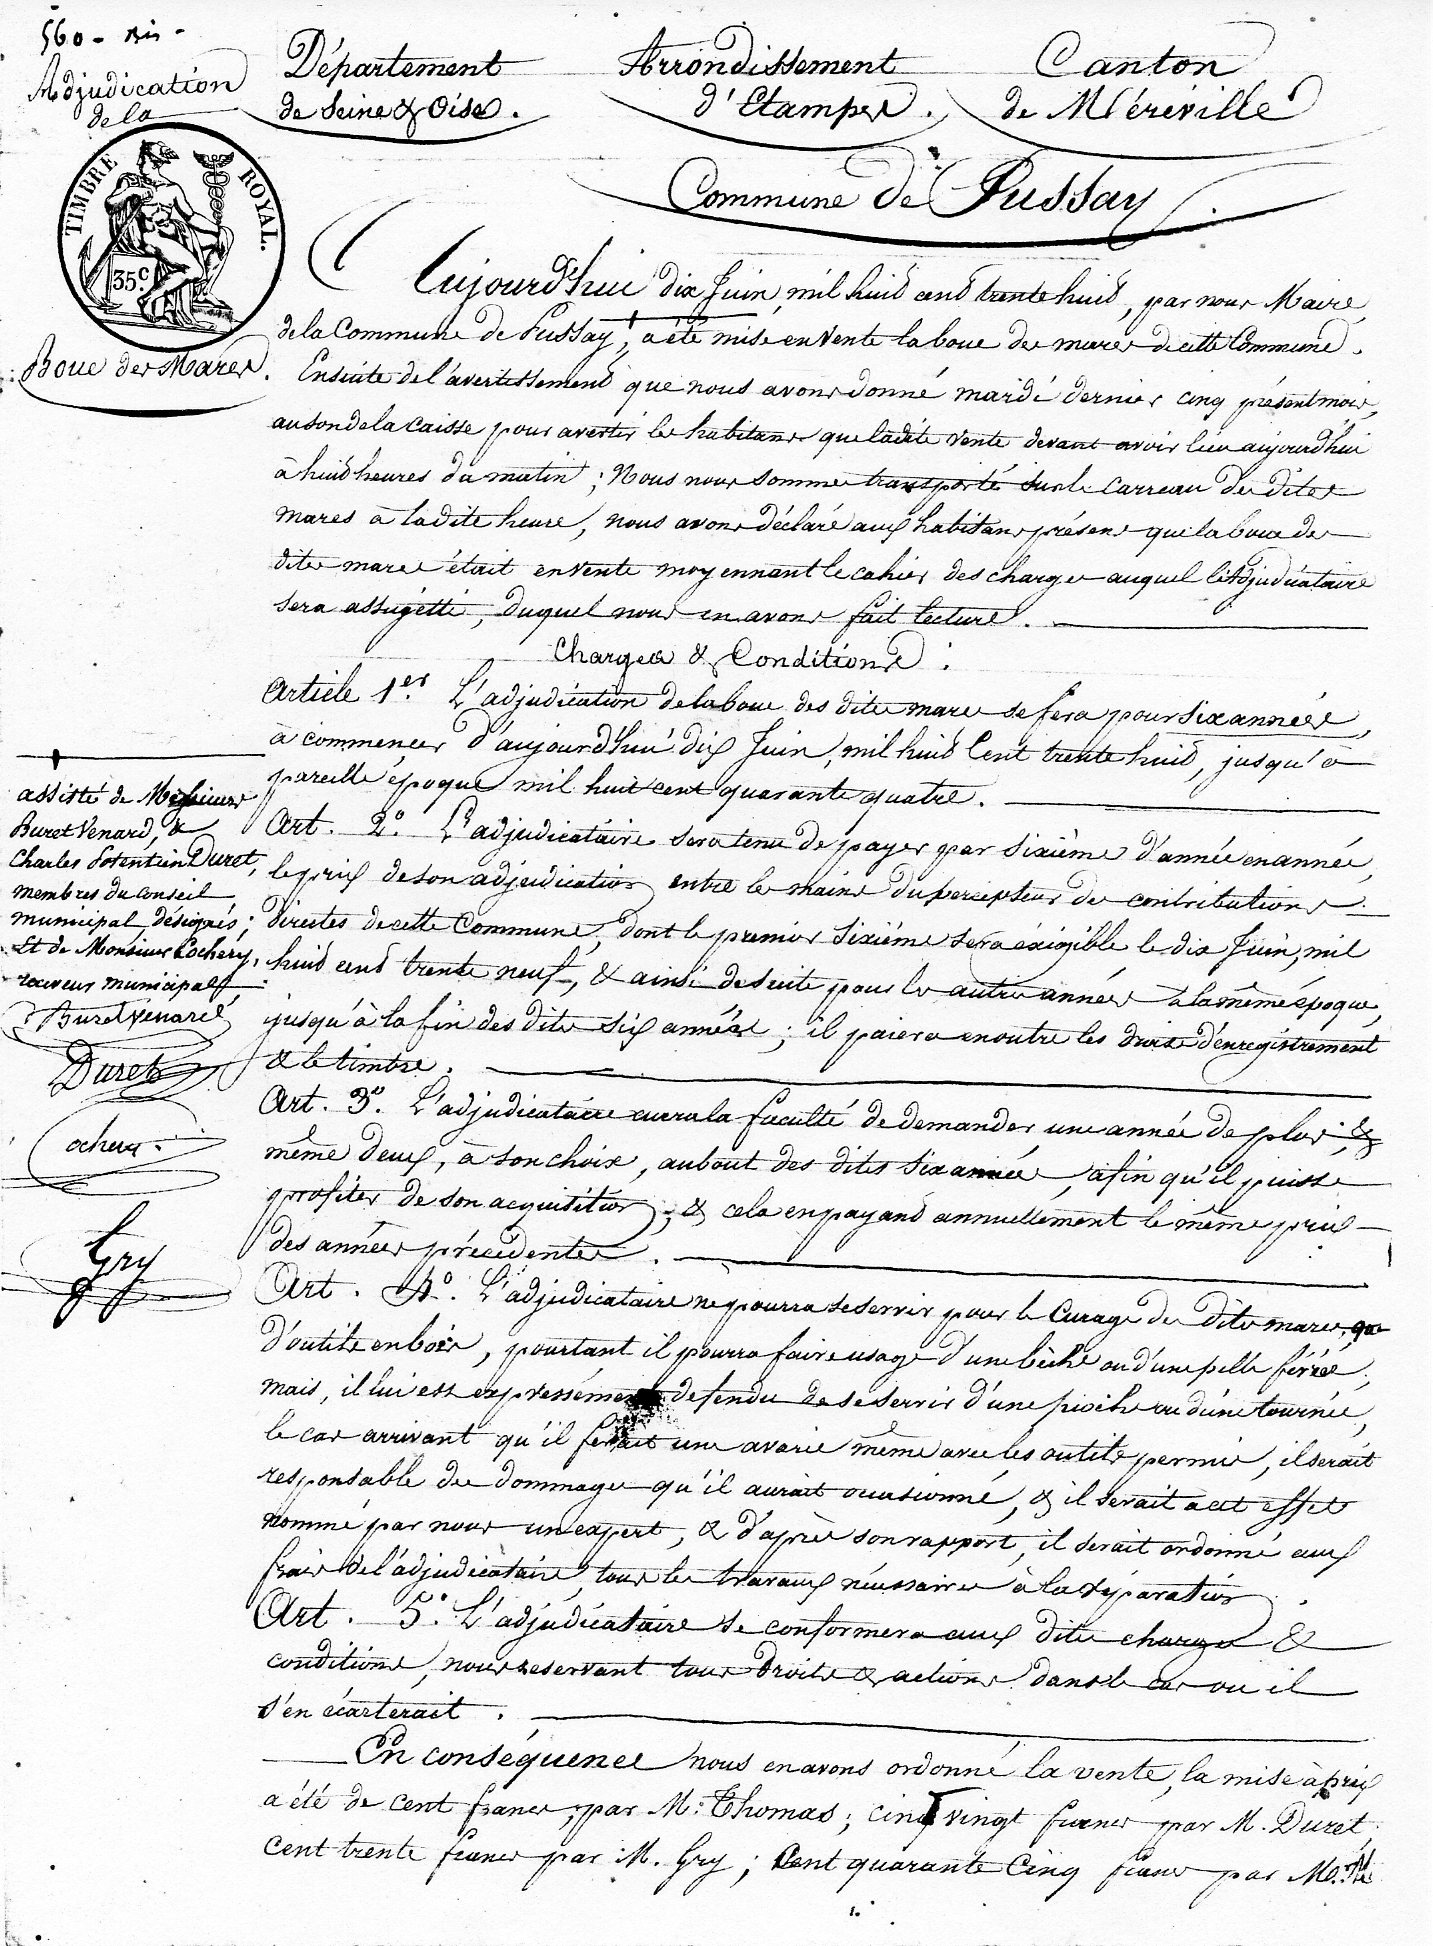 560 - Bis -
Adjudication
de la
Boue des Mares.
Département
de Seine & Oise.
Arrondissement
d'Etampes.
Canton
de Méréville
TIMBRE ROYAL.
35c
Commune de Pussay.
Aujourd'hui dix Juin, mil huit cent trente huit, par nous Maire
de la Commune de Pussay, a été mise en vente la boue des mares de cette Commune.
Ensuite de l'avertissement que nous avons donné mardi dernier cinq présent mois,
au son de la caisse pour avertir les habitans que ladite vente devant avoir lieu aujourd'hui
à huit heures du matin ; Nous nous sommes transporté sur le carreau des dites
mares à ladite heure, nous avons déclaré aux habitans présens que la boue des
dites mares était en vente moyennant le cahier des charges auquel l'Adjudicataire
sera assugétti, duquel nous en avons fait lecture.
Charges & Conditions :
Article 1er. L'adjudication de la boue des dites mares se fera pour six années,
à commencer d'aujourd'hui dix Juin, mil huit Cent trente huit, jusqu'à
pareille époque mil huit cent quarante quatre.
Art. 2º. L'adjudicataire sera tenu de payer par sixième d'année en année,
le prix de son adjudication entre les mains du percepteur des contributions
directes de cette Commune, dont le premier sixième sera éxigible le dix Juin, mil
huit cent trente neuf, & ainsi de suite pour les autres années à la même époque,
jusqu'à la fin des dites six années ; il paiera en outre les droits d'enregistrement
& le timbre.
Art. 3º. L'adjudicataire aura la faculté de demander une année de plus, &
même deux, à son choix, au bout des dites six années, afin qu'il puisse
profiter de son acquisition, & cela en payant annuellement le même prix
des années précédentes.
Art. 4º. L'adjudicataire ne pourra se servir pour le Curage des dites mares, que
d'outils en bois, pourtant il pourra faire usage d'une bêche ou d'une pelle férrée,
mais, il lui est expressément défendu de se servir d'une pioche ou d'une tournée,
le cas arrivant qu'il ferait une avarie même avec les outils permis, il serait
responsable des dommages qu'il aurait occasionné, & il serait a cet effet
nommé par nous un expert, & d'après son rapport, il serait ordonné aux
frais de l'adjudicataire, tous les travaux nécessaires à la réparation.
Art. 5º. L'adjudicataire se conformera aux dites charges &
conditions, nous reservant tous droits & actions dans le cas ou il
s'en écarterait.
En conséquence nous en avons ordonné la vente, la mise à prix
a été de cent francs, par M. Thomas ; cinq vingt francs par M. Duret
cent trente francs par M. Gry ; Cent quarante Cinq francs par M.
assisté de Messieurs
Buret Venard, &
Charles Potentien Duret,
membres du conseil
municipal, désignés ;
Et de Monsieur Cochery,
receveur municipal
Buret Venard
Duret
Cochery
Gry